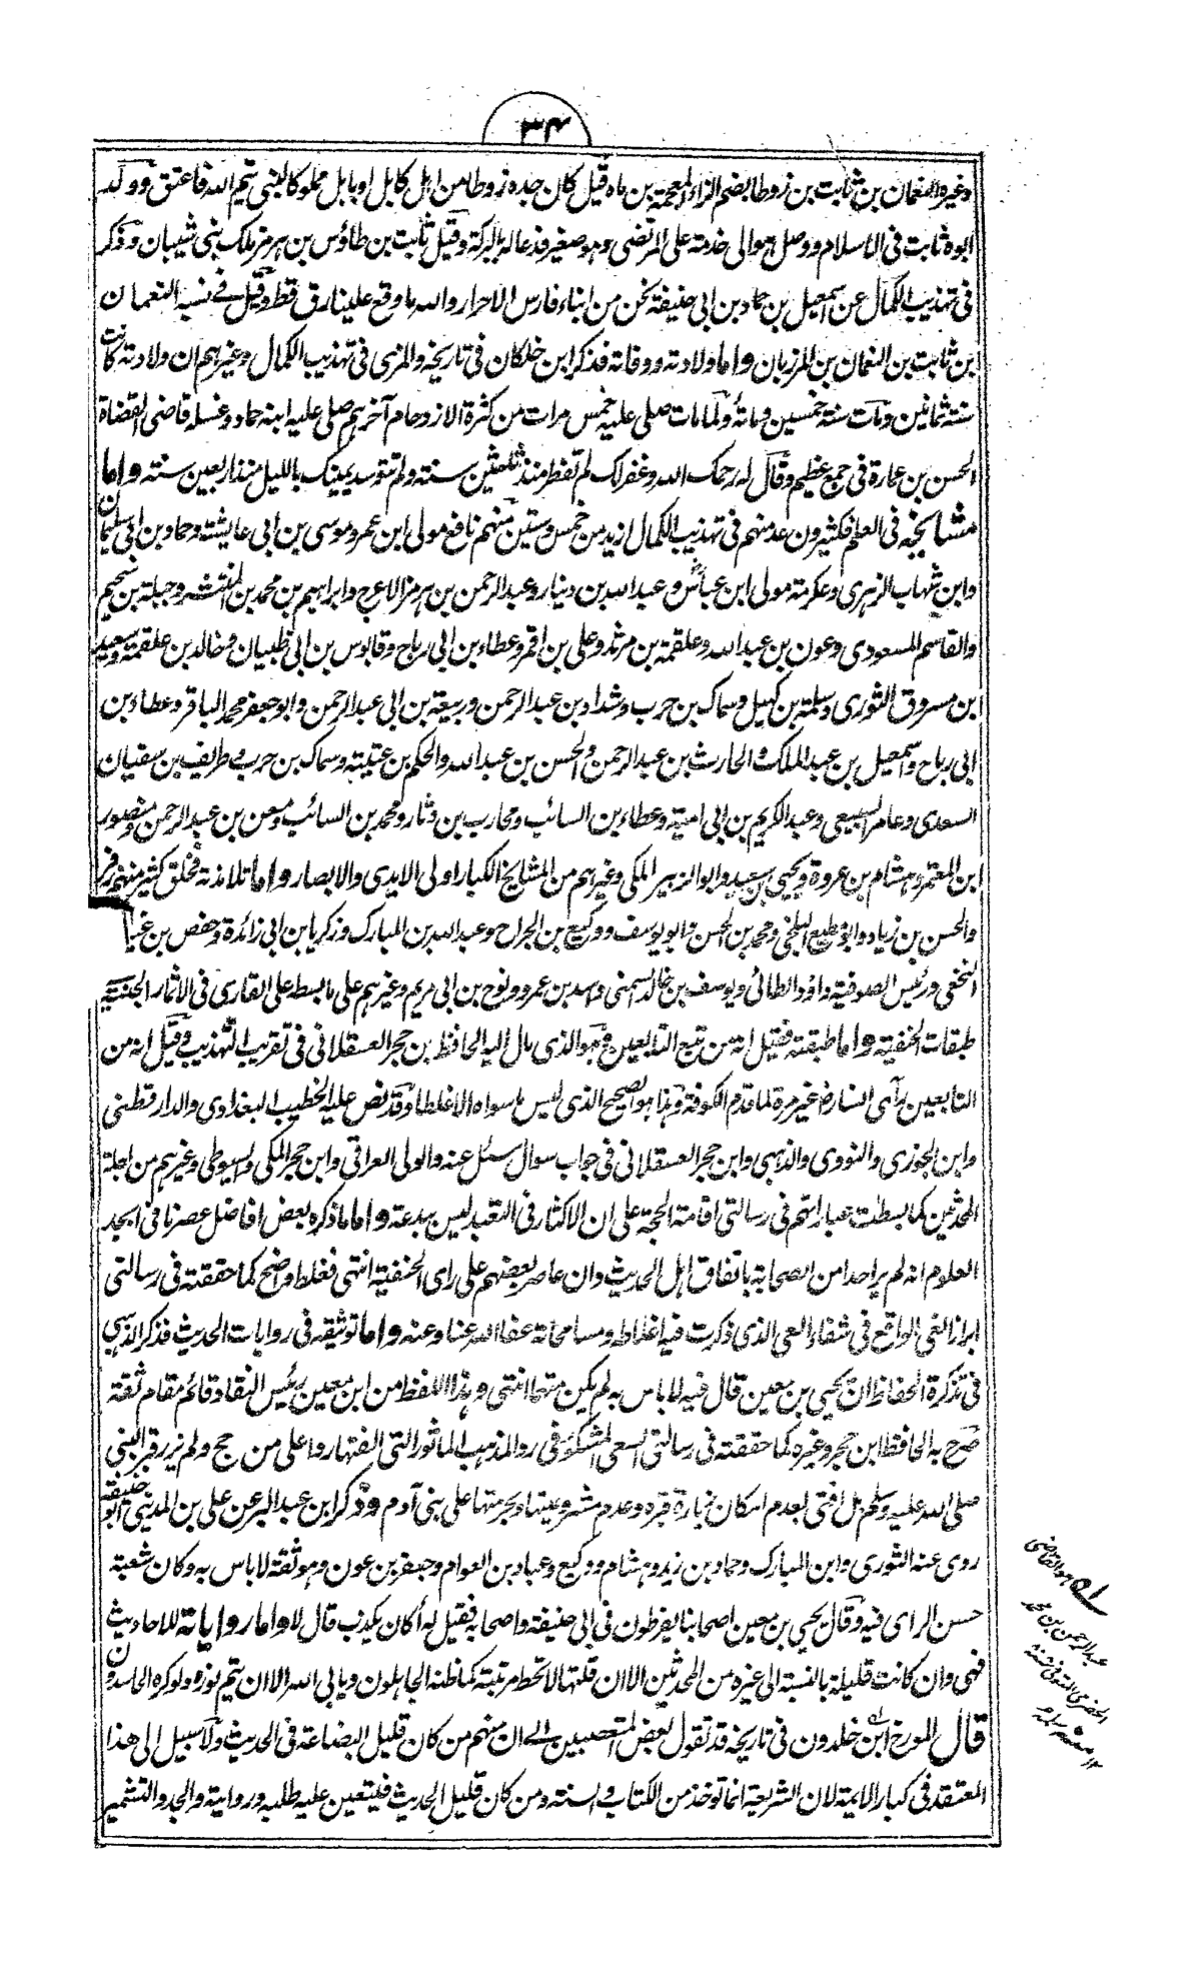 ٣٤
وغيره النعمان بن ثابت بن زوطا بضم الزاء المعجمة بن ماه قيل كان جده زوطا من اهل كابل او بابل مملوكا لبنى تيم الله فاعتق وولد
ابوه ثابت فى الاسلام ووصل هو الى خدمة على المرتضى وهو صغير فدعا له بالبركة وقيل ثابت بن طاؤس بن هرمز ملك بنى شيبان وذكر
فى تهذيب الكمال عن اسمعيل بن حماد بن ابى حنيفة نحن من ابناء فارس الاحرار والله ما وقع علينا رق قط وقيل فى نسبه النعمان
ابن ثابت بن النعمان بن المرزبان واما ولادته ووفاته فذكر ابن خلكان فى تاريخه والمزى فى تهذيب الكمال وغيرهم ان ولادته كانت
سنة ثمانين ومات سنة خمسين ومائة ولما مات صلى عليه خمس مرات من كثرة الازدحام آخرهم صلى عليه ابنه حماد وغسله قاضى القضاة
الحسن بن عمارة فى جمع عظيم وقال له رحمك الله وغفر لك لم تفطر منذ ثلثين سنة ولم تتوسد يمينك بالليل منذ اربعين سنة واما
مشايخه فى العلم فكثيرون عد منهم فى تهذيب الكمال ازيد من خمس وستين منهم نافع مولى ابن عمر وموسى بن ابى عايشة وحماد بن ابى سليمان
وابن شهاب الزهرى وعكرمة مولى ابن عباس وعبد الله بن دينار وعبد الرحمن بن هرمز الاعرج وابراهيم بن محمد بن المنتشر وجبلة بن سحيم
والقاسم المسعودى وعون بن عبد الله وعلقمة بن مرثد وعلى بن اقمر وعطاء بن ابى رباح وقابوس بن ابى ظبيان وخالد بن علقمة وسعيد
ابن مسروق الثورى وسلمة بن كهيل وسماك بن حرب وشداد بن عبد الرحمن وربيعة بن ابى عبد الرحمن وابو جعفر محمد الباقر وعطاء بن
ابى رباح واسمعيل بن عبد الملك والحارث بن عبد الرحمن والحسن بن عبد الله والحكم بن عتيبة وسماك بن حرب وطريف بن سفيان
السعدى وعامر السبيعى وعبد الكريم بن ابى امية وعطاء بن السائب ومحارب بن دثار ومحمد بن السائب ومعن بن عبد الرحمن ومنصور
ابن المعتمر وهشام بن عروة ويحيى بن سعيد وابو الزبير المكى وغيرهم من المشايخ الكبار اولى الايدى والابصار واما تلامذته فخلق كثير منهم زفر
والحسن بن زياد وابو مطيع البلخى ومحمد بن الحسن وابو يوسف ووكيع بن الجراح وعبد الله بن المبارك وزكريا بن ابى زائدة وحفص بن غياث
النخعى ورئيس الصوفية داؤد الطائى ويوسف بن خالد السمتى واسد بن عمرو ونوح بن ابى مريم وغيرهم على ما بسط على القارى فى الاثمار الجنية فى
طبقات الحنفية واما طبقته فقيل انه من تبع التابعين وهو الذى مال اليه الحافظ بن حجر العسقلانى فى تقريب التهذيب وقيل انه من
التابعين رآى انسا رض غير مرة لما قدم الكوفة وهذا هو الصحيح الذى ليس ما سواه الا غلطا وقد نص عليه الخطيب البغدادى والدارقطنى
وابن الجوزى والنووى والذهبى وابن حجر العسقلانى فى جواب سوال سئل عنه والولى العراقى وابن حجر المكى والسيوطى وغيرهم من اجلة
المحدثين كما بسطت عباراتهم فى رسالتى اقامة الحجة على ان الاكثار فى التعبد ليس ببدعة واما ما ذكره بعض افاضل عصرنا فى ابجد
العلوم انه لم ير احدا من الصحابة باتفاق اهل الحديث وان عاصر بعضهم على راى الحنفية انتهى فغلط واضح كما حققته فى رسالتى
ابراز الغى الواقع فى شفاء العى الذى ذكرت فيه اغلاطه ومسامحاته عفا الله عنا وعنه واما توثيقه فى روايات الحديث فذكر الذهبى
فى تذكرة الحفاظ ان يحيى بن معين قال فيه لا باس به لم يكن متهما انتهى وهذا اللفظ من ابن معين رئيس النقاد قائم مقام ثقة
صرح به الحافظ ابن حجر وغيره كما حققته فى رسالتى السعى المشكور فى رد المذهب الماثور التى الفتها ردا على من حج ولم يزر قبر النبى
صلى الله عليه وسلم بل افتى بعدم امكان زيارة قبره وعدم مشروعيتها وبحرمتها على بنى آدم وذكر ابن عبد البر عن على بن المدينى ابو حنيفة
روى عنه الثورى وابن المبارك وحماد بن زيد وهشام ووكيع وعباد بن العوام وجعفر بن عون وهو ثقة لا باس به وكان شعبة
حسن الراى فيه وقال يحيى بن معين اصحابنا يفرطون فى ابى حنيفة واصحابه فقيل له أكان يكذب قال لا واما رواياته للاحاديث
فهى وان كانت قليلة بالنسبة الى غيره من المحدثين الا ان قلتها لا تحط مرتبته كما ظنه الجاهلون ويابى الله الا ان يتم نوره ولو كره الحاسدون
قال المورخ ابن خلدون فى تاريخه قد تقول بعض المتعصبين الى ان منهم من كان قليل البضاعة فى الحديث ولا سبيل الى هذا
المعتقد فى كبار الايمة لان الشريعة انما توخذ من الكتاب والسنة ومن كان قليل الحديث فيتعين عليه طلبه وروايته والجد والتشمير
له هو القاضى
عبد الرحمن بن محمد
الحضرمى المتوفى سنة
١٢ منه سلمه